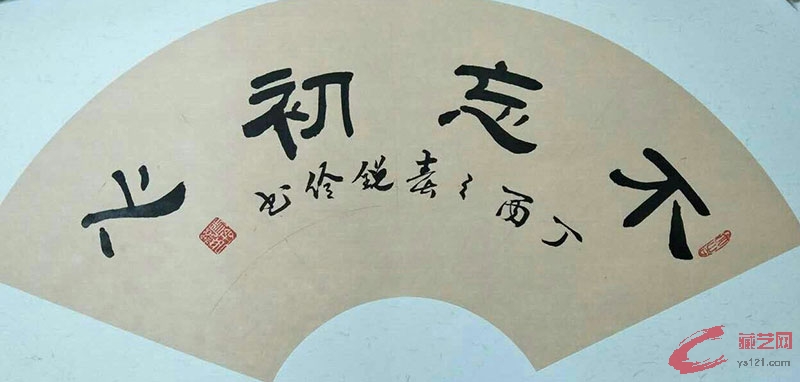 不忘初心
丁酉之春锐伶书
藏艺网
ys121.com